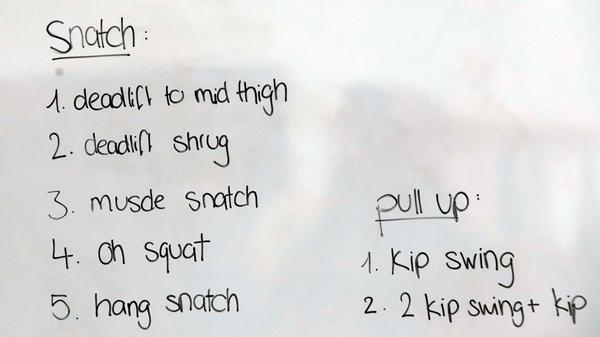 Snatch:
1. deadlift to mid thigh
2. deadlift shrug
3. muscle snatch
4. oh squat
5. hang snatch
pull up:
1. Kip swing
2. 2 kip swing + kip